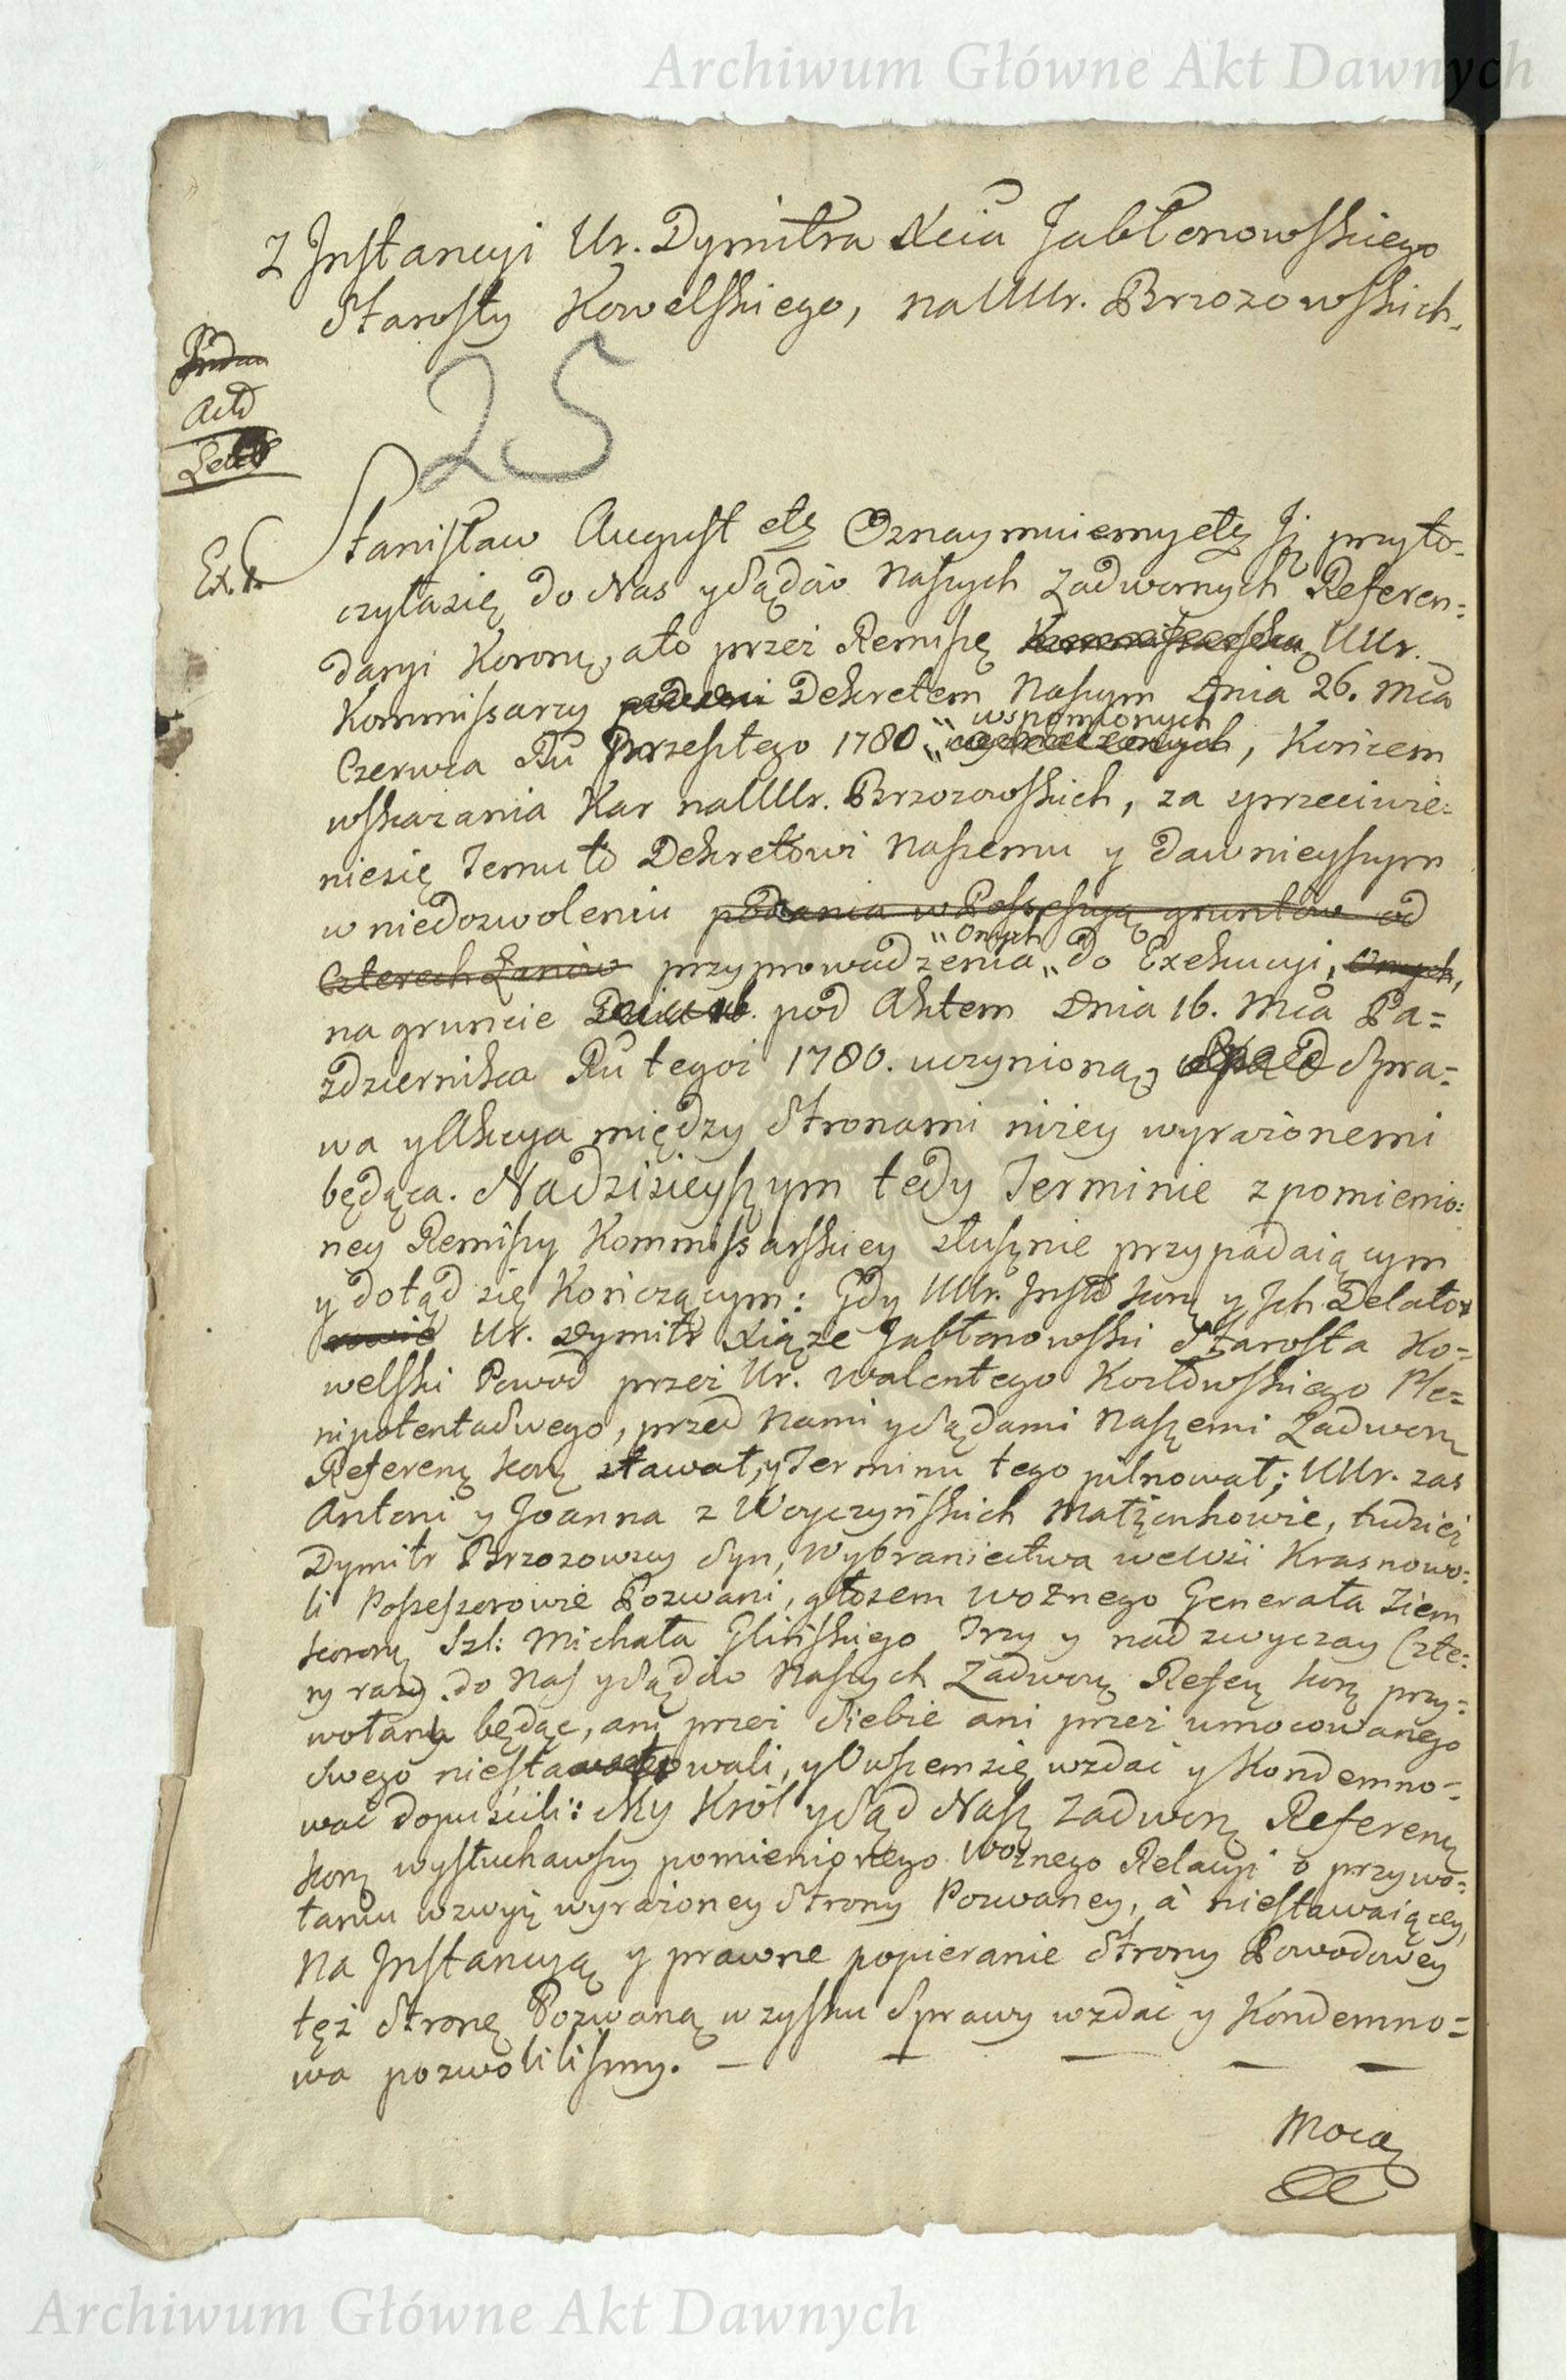 Archiwum Główne Akt Dawnych
Z Instancyi Ur. Dymitra Xcia Jabłonowskiego
Starosty Kowelskiego, na UUr. Brzozowskich.
Indu
Actō
25
Stanisław August etc Oznaymuiemy etc Iż przyto-
czyła się do Nas y Sądów Naszych Zadwornych Referen:
Ext.
daryi Koronę, a to przez Remissę Kommissarską UUr.
Kommissarzy Dekretem Naszym Dnia 26. Mca
wspomnionych
Czerwca Ru Przeszłego 1780 , Końcem
wskazania Kar na UUr. Brzozowskich, za zprzeciwie:
nie się Temuto Dekretowi Naszemu y dawnieyszym
w niedozwoleniu podania w Possessyą gruntów od
Onych
Czterech Łanów przyprowadzenia do Exekucyi, Onych,
na gruncie Dnia 16. pod Aktem Dnia 16. Mca Pa=
zdziernika Ru tegoż 1780. uczynioną, Spra=
wa y Akcya między Stronami niżey wyrażonemi
będąca. Na dzisieyszym tedy Terminie z pomienio:
ney Remissy Kommissarskiey słusznie przypadaiącym
y dotąd się Kończącym: Gdy UUr. Instō Korę y Ich Delator
Ur. Dymitr Xiąże Jabłonowski Starosta Ko=
welski Powod przez Ur. Walentego Kozłowskiego Ple=
nipotenta Swego, przed Nami y Sądami Naszemi Zadworę
Referenę Korę stawał, y Terminu tego pilnował; UUr. zas
Antoni y Joanna z Woyczyńskich Małżonkowie, tudzież
Dymitr Brzozowscy Syn, Wybraniectwa we Wsi Krasnowo:
li Possessorowie Pozwani, głosem Woźnego Generała Ziem
Koronę Szl: Michała Glińskiego Trzy y nad zwyczay Czte:
ry razy do Nas y Sądów Naszych Zadworę Referę Korę przy=
wołany będąc, ani przez Siebie ani przez umocowanego
Swego niestawali, y Owszem się wzdać y Kondemno=
wać dopuścili: My Król y Sąd Nasz Zadworę Referenę
Korę wysłuchawszy pomienionego Woźnego Relacyi o przywo:
łaniu wzwyż wyrażoney Strony Pozwaney, à niestawaiącey,
Na Instancyą y prawne popieranie Strony Powodowey
też Stronę Pozwaną w zysku Sprawy wzdać y Kondemno=
wa pozwolilismy. — — — — —
Mocą
Archiwum Główne Akt Dawnych